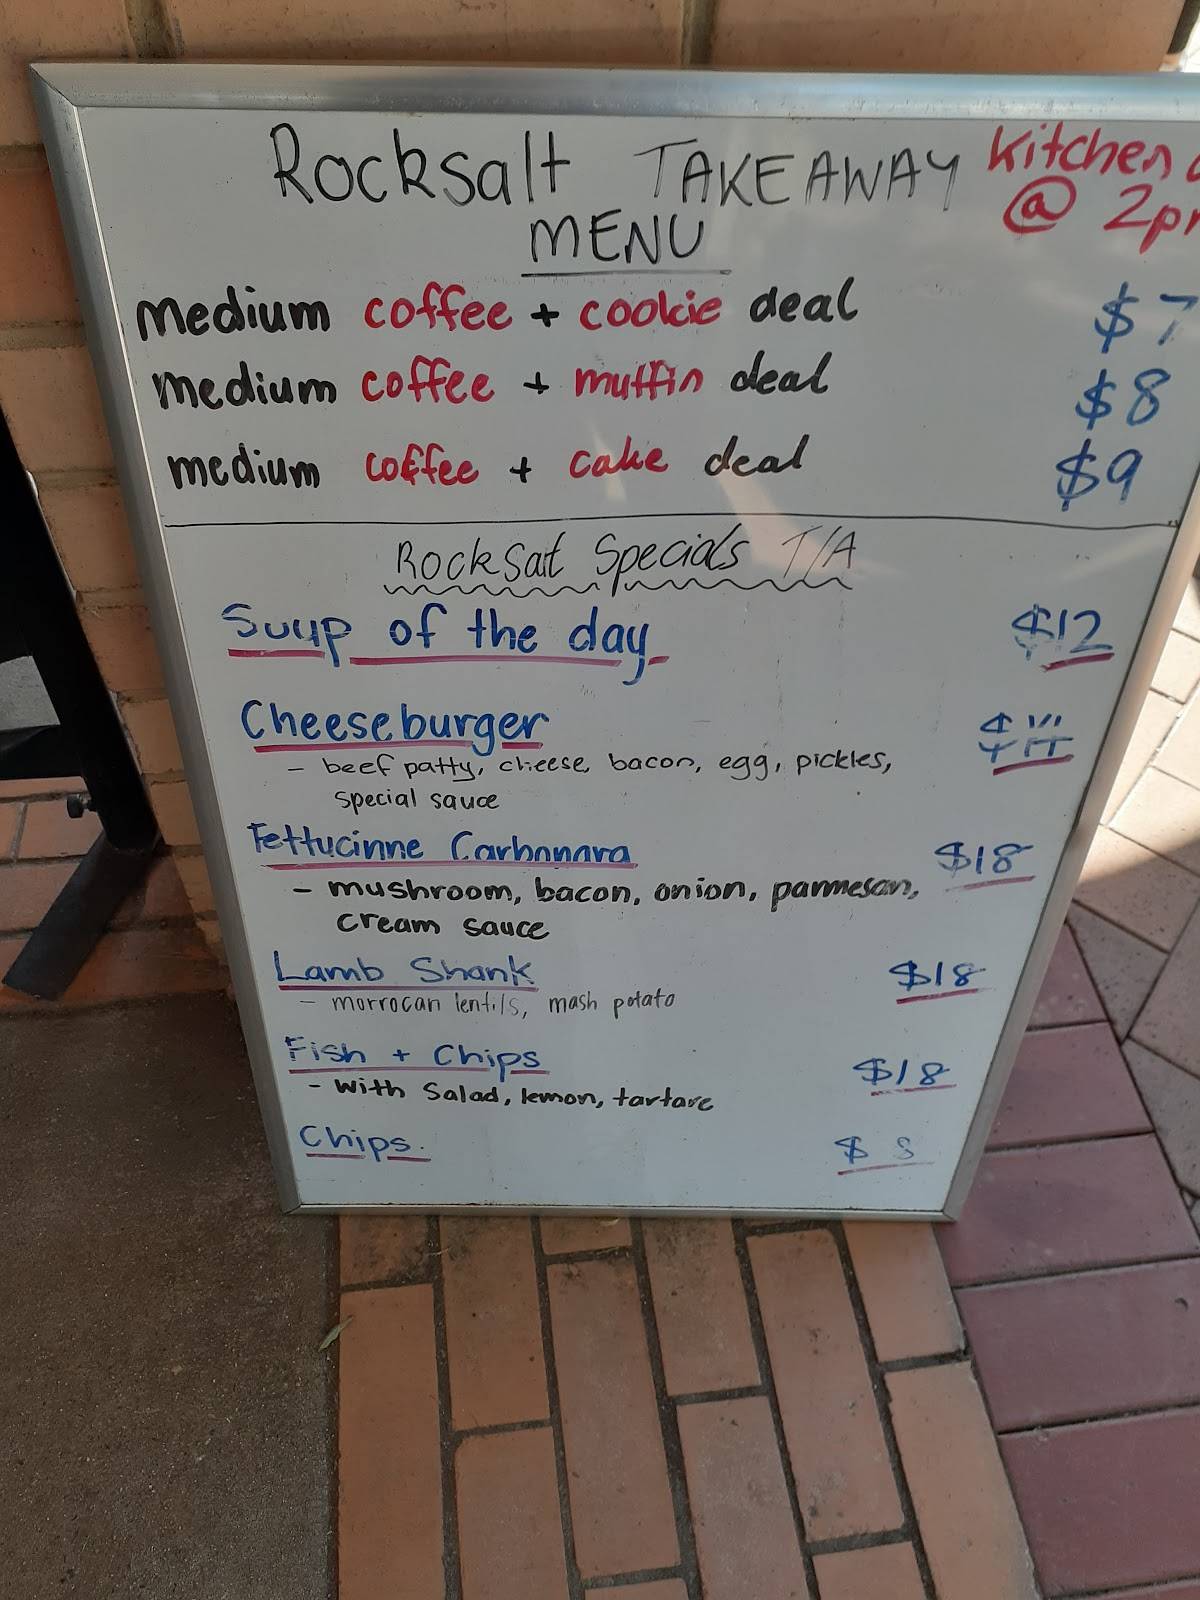 Rocksalt TAKEAWAY
MENU
Kitchen
@ 2p
medium coffee + cookie deal $7
medium coffee + muffin deal $8
medium coffee + cake deal $9
RockSalt Specials T/A
Soup of the day $12
Cheeseburger
- beef patty, cheese, bacon, egg, pickles,
special sauce
Fettucinne Carbonara $18
- mushroom, bacon, onion, parmesan,
cream sauce
Lamb Shank $18
- morrocan lentils, mash potato
Fish + Chips $18
- with Salad, lemon, tartare
Chips. $8